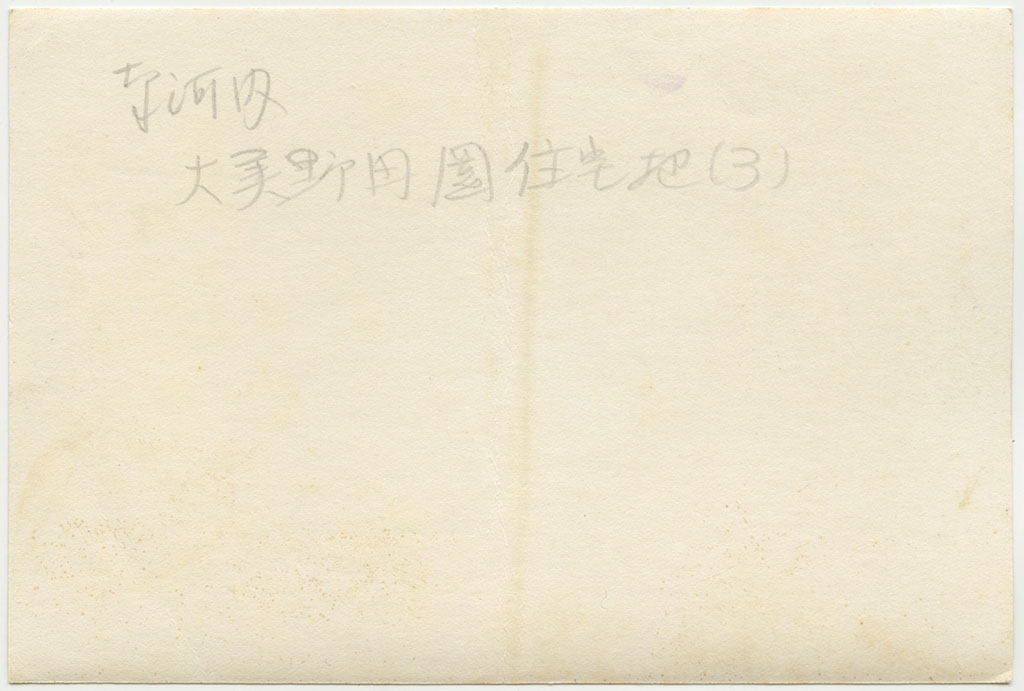 南河内
大美野田園住宅地(3)